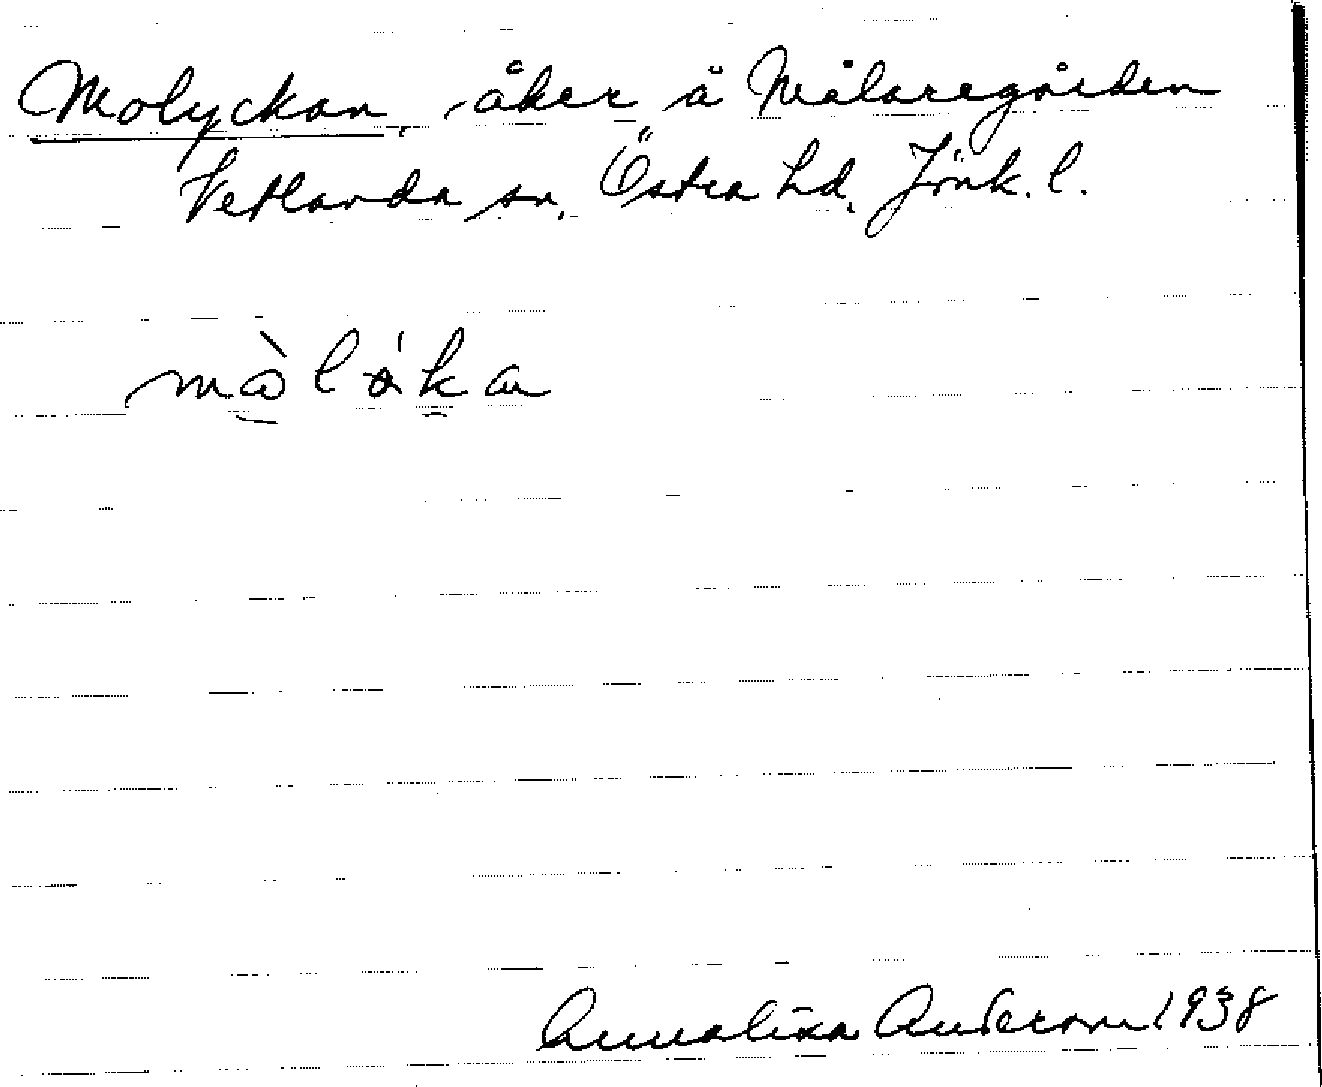 Molyckan, åker å Målaregården
Vetlanda sn, Östra hd, Jönk. l.
Annalisa Anderson 1938